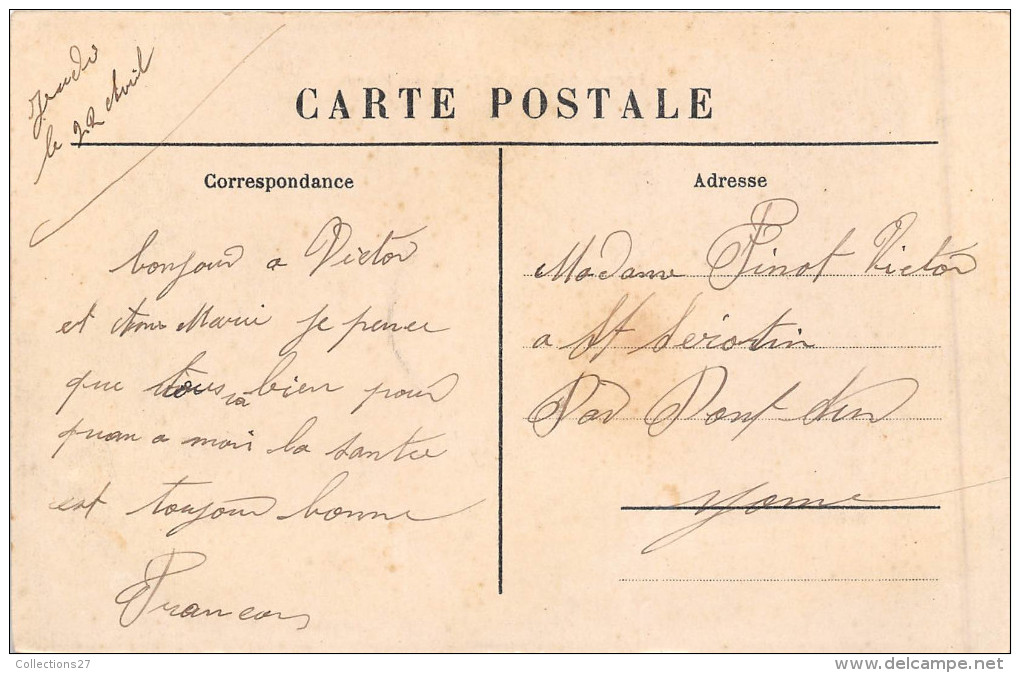 Jeudi
le 22 Avril
CARTE POSTALE
Correspondance
Adresse
bonjour a Victor
et Marie je pence
que tous va bien pour
quan a moi la santee
est toujour bonne
Francois
Madame Pinot Victor
a St Serotin
Par Pont sur
Yonne
Collections27
www.delcampe.net